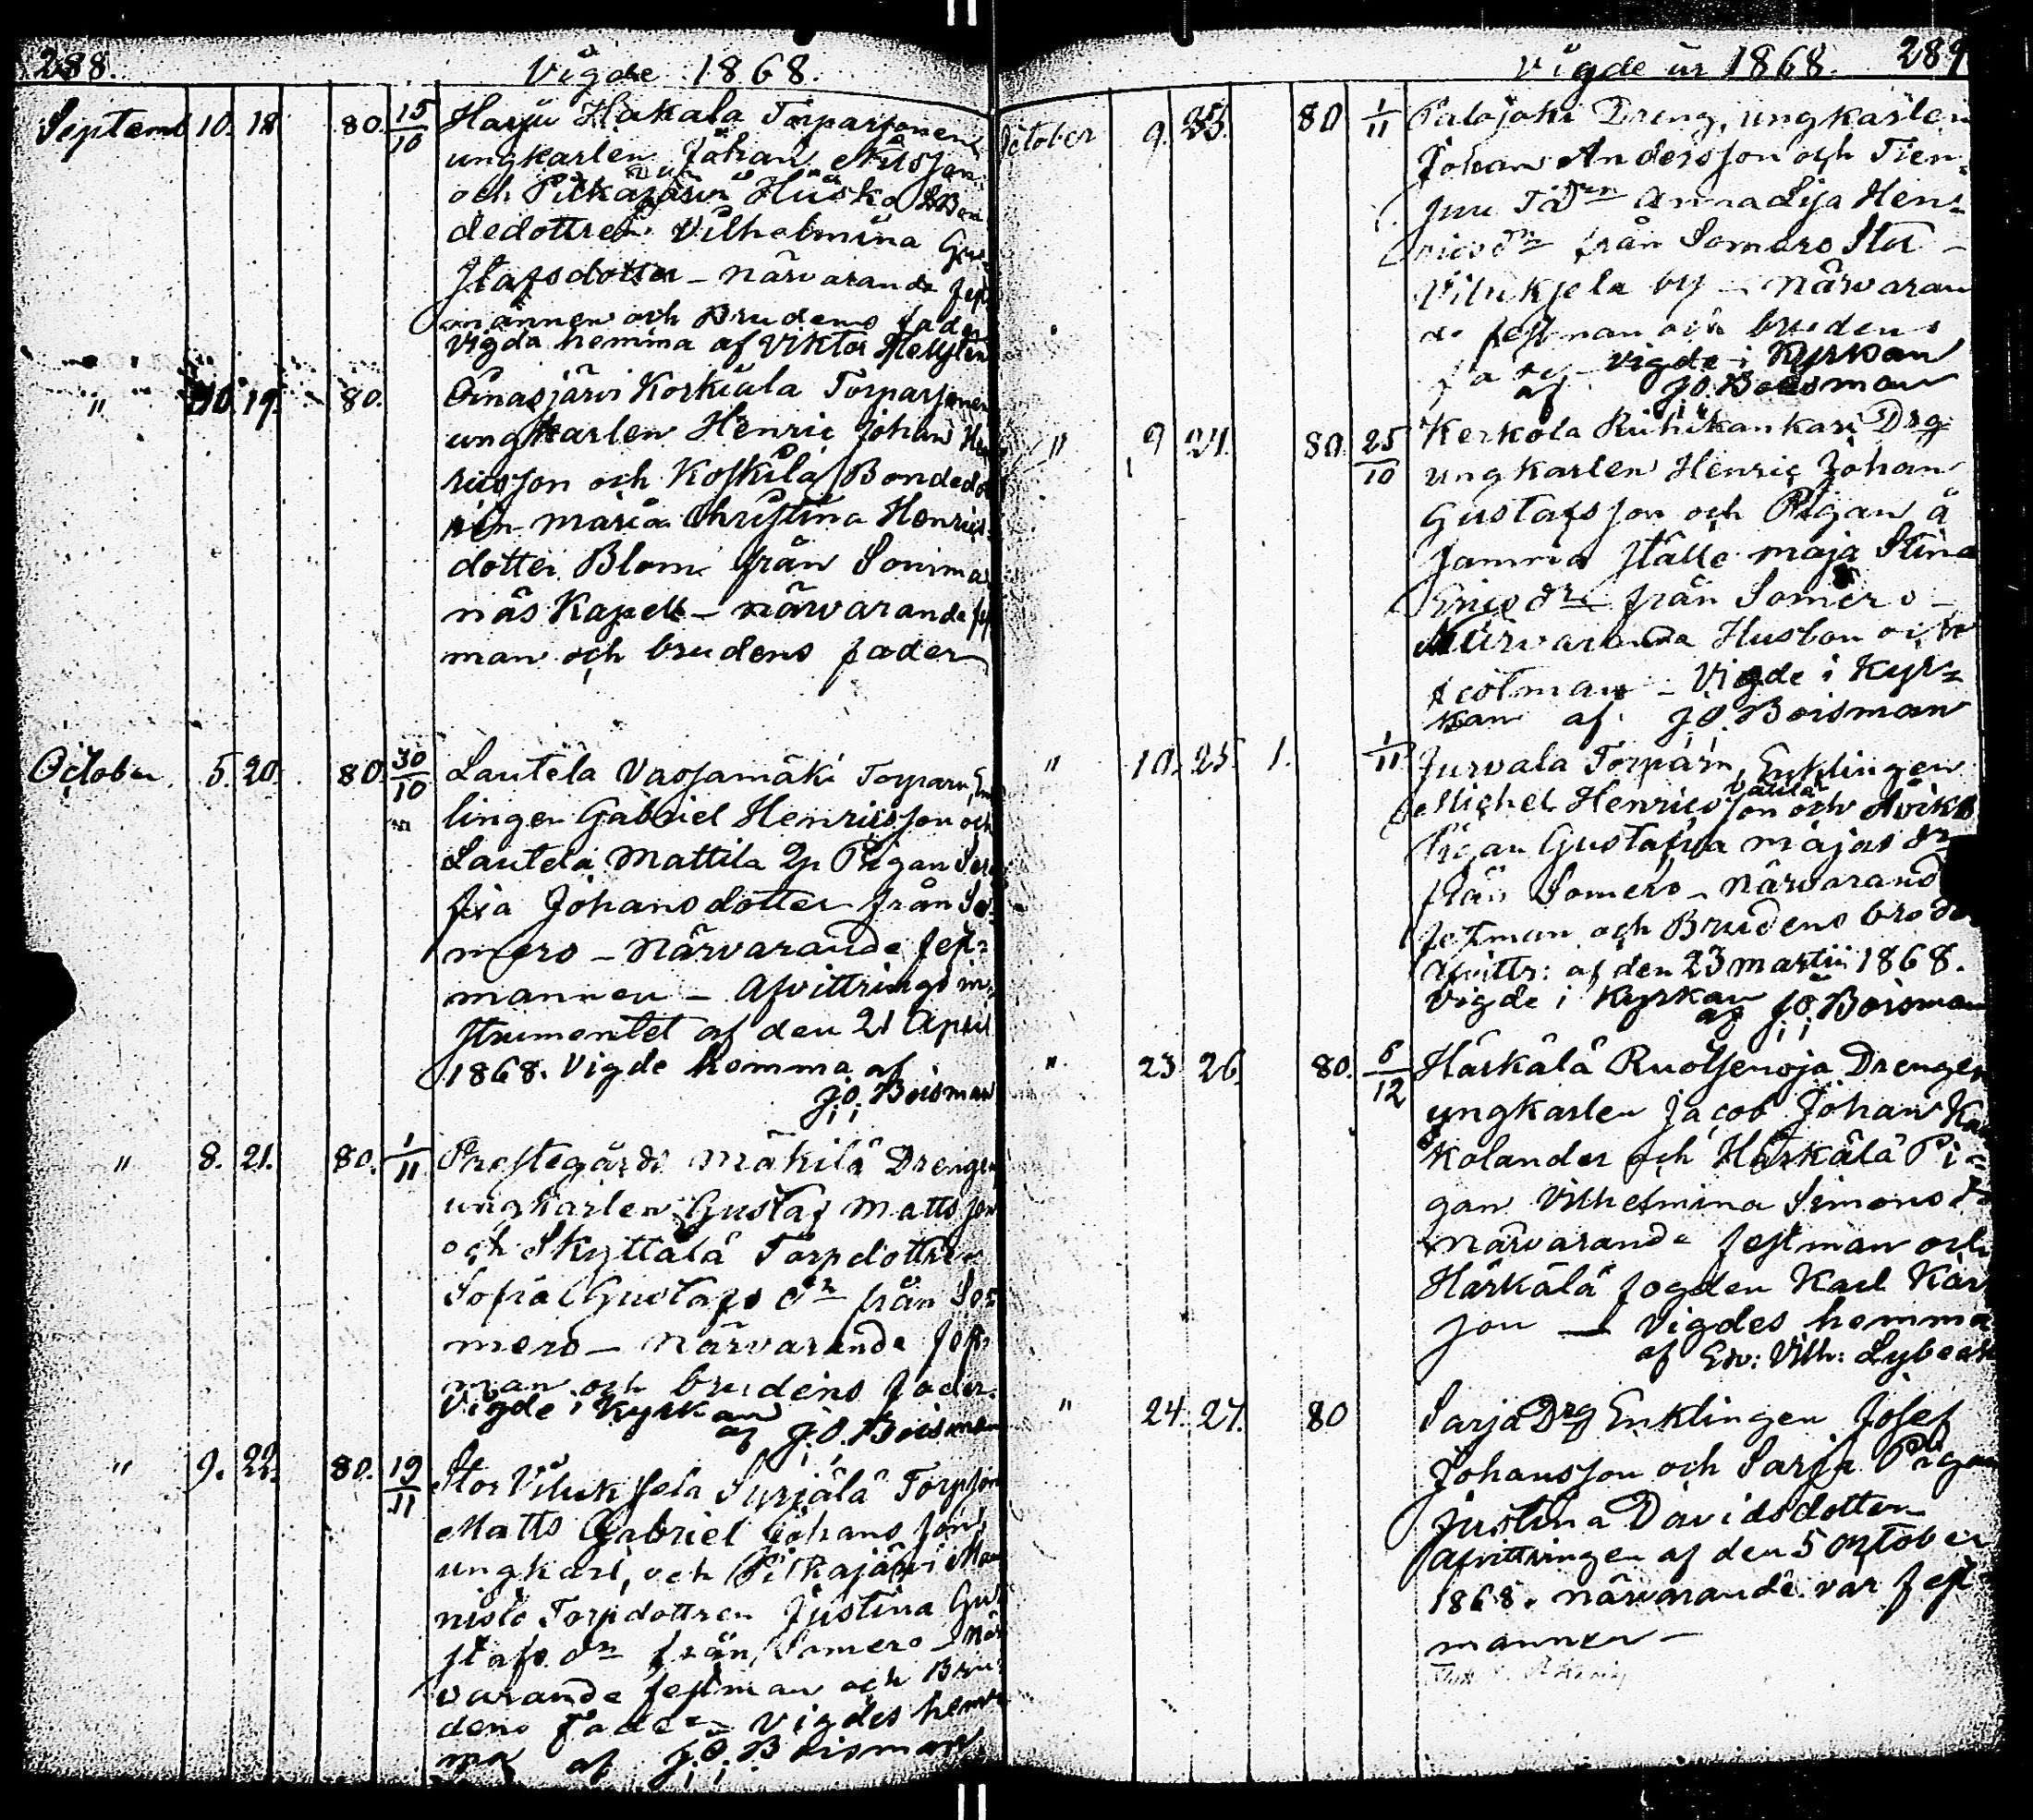 288. Vigde 1868.
Septemb 10. 18 80. 15/10 Harju Hakala Torparsonen
ungkarlen Johan Nilsson
och Pitkäjärvi Huska Bon
dedottren Vilhelmina Gu
stafsdotter – närvarande fest
männen och Brudens fader
Vigda hemma af Viktor Hellsten
" 10. 19. 80. Oinasjärvi Korkiala Torparsonen
ungkarlen Henric Johan Hen
ricsson och Koskila Bondedot
ren Maria Christina Henrics
dotter Blom från Somma
näs Kapell – närvarande fest
man och brudens fader
October 5. 20. 80. 30/10 Lautela Vassamäki Torparn, En
lingen Gabriel Henricsson och
Lautela Mattila Pigan Sera
fia Johansdotter från So
mero – Närvarande fest
mannen – Afvittrings in
strumentet af den 21 April
1868. Vigde hemma af
J.O. Boisman
" 8. 21. 80. 1/11 Prestegårds Mäkilä Drengen
ungkarlen Gustaf Mattsson
och Skyttälä Torpdottren
Sofia Gustafs dr från So
mero – Närvarande fest
man och brudens fader.
Vigde i Kyrkan
af J.O. Boisman
" 9. 22. 80. 19/11 Stor Viluksela Syrjälä Torpson
Matts Gabriel Johansson,
ungkarl, och Pitkäjärvi Man
nisto Torpdottren Justina Gu
stafs dr från Somero – När
varande festman och Bru
dens Fader – Vigdes hem
ma af J.O. Boisman
Vigde år 1868. 289
October 9. 23. 80 1/11 Palojoki Dreng, ungkarlen
Johan Andersson och Tien
Anna Lisa Hen
rics dr från Somero Stor
Viluksela by – Närvaran
de festman och brudens
fader – Vigde i Kyrkan
af J.O. Boisman
" 9 24. 80. 25/10 Kerkola Riihikankari Drg
ungkarlen Henric Johan
Gustafsson och Pigan å
samma ställe Maja Stina
Erics dr från Somero –
Närvarande Husbon och
festman – Vigde i Kyr=
kan af J.O. Boisman
" 10. 25. 1. 1/11 Jurvala Torparn, Enklingen
Michel Henricsson och
Pigan Gustafva Majas dr
från Somero – närvarand
festman och Brudens broder
Afvittr: af den 23 martii 1868.
Vigde i Kyrkan
af J.O. Boisman
" 23 26. 80. 6/12 Härkälä Ruotsenoja Drengen
ungkarlen Jacob Johan
kolander och Härkälä Pi=
gan Vilhelmina Simons dr
närvarande festman och
Härkälä fogden Karl Karls
son — Vigdes hemma
af Edv: Vilh: Lybeck
" 24. 27. 80 Sarja Drg Enklingen Josef
Johansson och Sarja Pigan
Justina Davidsdotter
Afvittringen af den 5 October
1868. närvarande var fest
mannen –